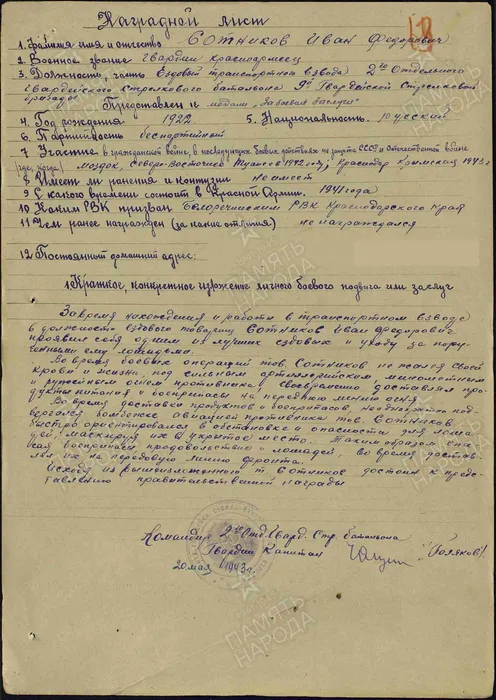 Наградной лист
1. Фамилия имя и отчество Сотников Иван Федорович
2. Военное звание Гвардии красноармеец
3. Должность, часть Ездовый транспортного взвода 2го Отдельного
Гвардейского стрелкового батальона 9й Гвардейской Стрелковой
бригады
Представлен к медали "За боевые заслуги"
4. Год рождения 1922 5. Национальность. Русский
6. Партийность беспартийный
7. Участие в гражданской войне, в последующих боевых действиях по защите СССР и отечественной войне
(где, когда) Моздок, Северо-Восточнее Туапсе 1942 году, Краснодар Крымская 1943 г.
8 Имеет ли ранения и контузии Не имеет
9 С какого времени состоит в Красной Армии. 1941 года
10 Каким РВК призван Белореченским РВК Краснодарского Края
11 Чем ранее награжден (за какие отличия) не награждался
12 Постоянный домашний адрес:
1. Краткое, конкретное изложение личного боевого подвига или заслуг
За время нахождения и работы в транспортном взводе
в должности ездового товарищ Сотников Иван Федорович
проявил себя одним из лучших ездовых и уходу за пору-
ченными ему лошадьми.
Во время боевых операций тов. Сотников не жалея своей
крови и жизни, под сильным артиллерийским минометным
и ружейным огнем противника своевременно доставлял про-
дукты питания и боеприпасы на переднюю линию огня.
Во время доставки продуктов и боеприпасов, неоднократно под-
вергался бомбежке авиацией противника тов. Сотников
быстро ориентировался в обстановке и опасности, для лоша-
дей, маскируя их в укрытое место. Таким образом, спа-
сая боеприпасы продовольствие и лошадей, во время достав-
лял их на передовую линию фронта.
Исходя из вышеизложенного т. Сотников достоин к пред-
ставлению правительственной награды
Командир 2го Отд. Гвард. Стр. батальона
Гвардии Капитан (Поляков).
20 мая 1943 г.
ПАМЯТЬ
НАРОДА